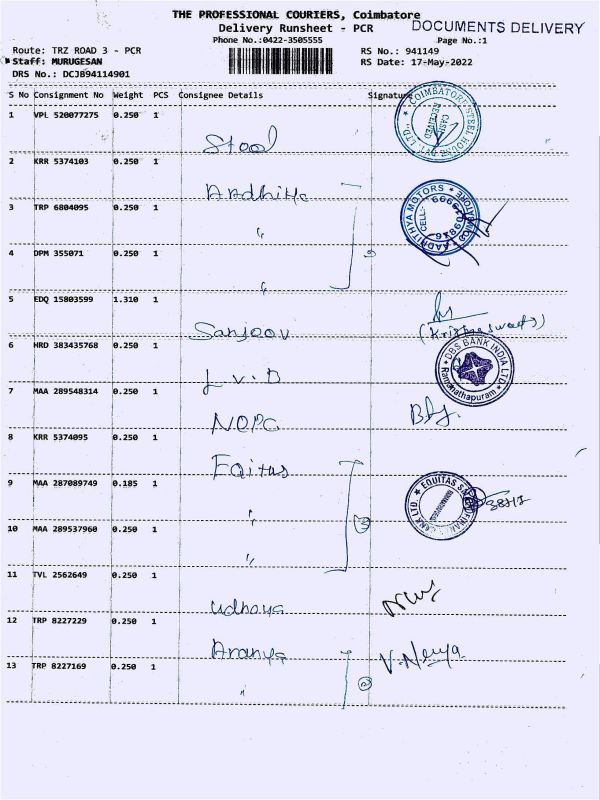 THE PROFESSIONAL COURIERS, Coimbatore
Delivery Runsheet - PCR
DOCUMENTS DELIVERY
Phone No.:0422-3505555
Page No.:1
Route: TRZ ROAD 3 - PCR
RS No.: 941149
Staff: MURUGESAN
RS Date: 17-May-2022
DRS No.: DCJB94114901
S No Consignment No Weight PCS Consignee Details Signature
1 VPL 520077275 0.250 1
Steel
COIMBATORE STEEL HOUSE
CASH RECEIVED
2 KRR 5374103 0.250 1
AADHITHYA MOTORS
CELL:
3 TRP 6804095 0.250 1
"
4 DPM 355071 0.250 1
"
5 EDQ 15803599 1.310 1
Sanjeev
6 HRD 383435768 0.250 1
L.V.B
DBS BANK INDIA LTD.
Ramanathapuram
7 MAA 289548314 0.250 1
8 KRR 5374095 0.250 1
9 MAA 287089749 0.185 1
"
EQUITAS
10 MAA 289537960 0.250 1
"
11 TVL 2562649 0.250 1
Udhaya
12 TRP 8227229 0.250 1
Aranya
V. Nenya
13 TRP 8227169 0.250 1
"